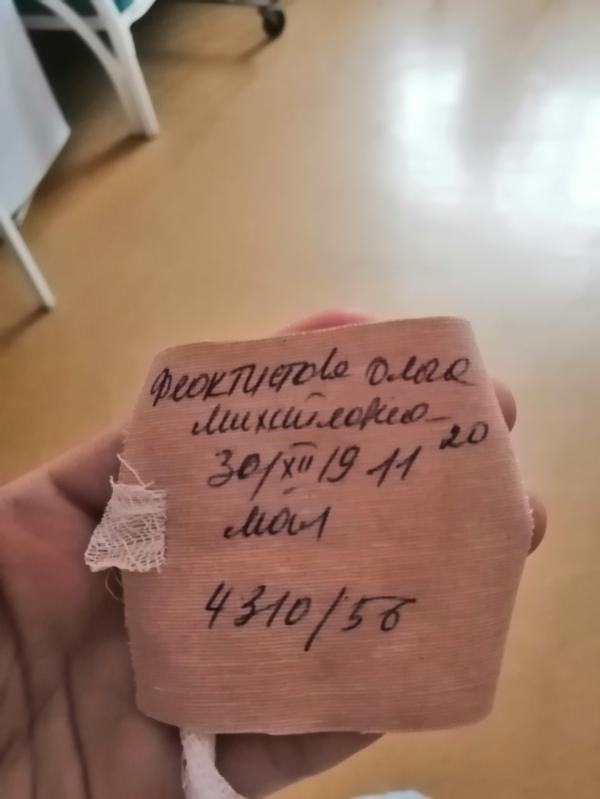 Феоктистова Ольга
Михайловна
30/XII 19 11 20
мал
4310/56